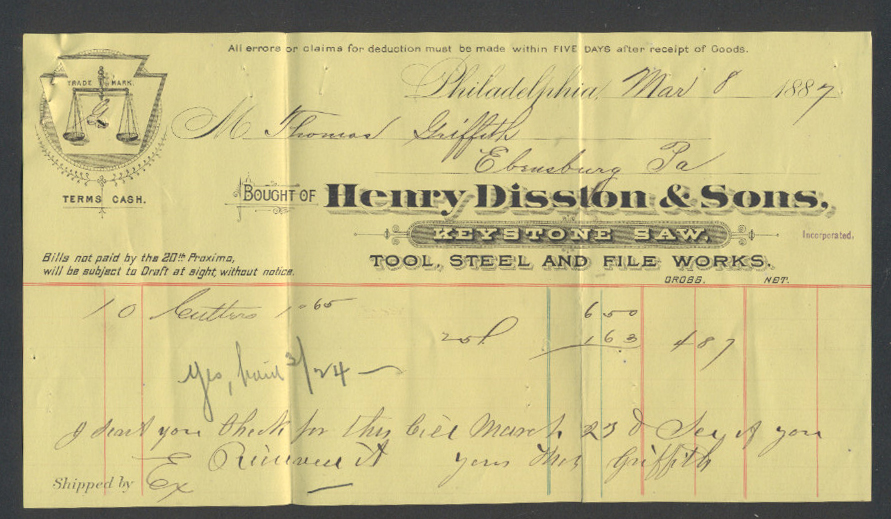 All errors or claims for deduction must be made within FIVE DAYS after receipt of Goods.
TRADE MARK.
Philadelphia, Mar 8 1887
M Thomas Griffith
Ebensburg Pa
TERMS CASH.
BOUGHT OF Henry Disston & Sons,
KEYSTONE SAW,
Incorporated.
TOOL, STEEL AND FILE WORKS.
Bills not paid by the 20th Proximo,
will be subject to Draft at sight, without notice.
GROSS. NET.
10 Cutters 65 6 50
25% 1 63 4 87
Yes, paid 3/24
I sent you check for this bill March 23 d See if you
Received it yours Thos Griffith
Shipped by Ex